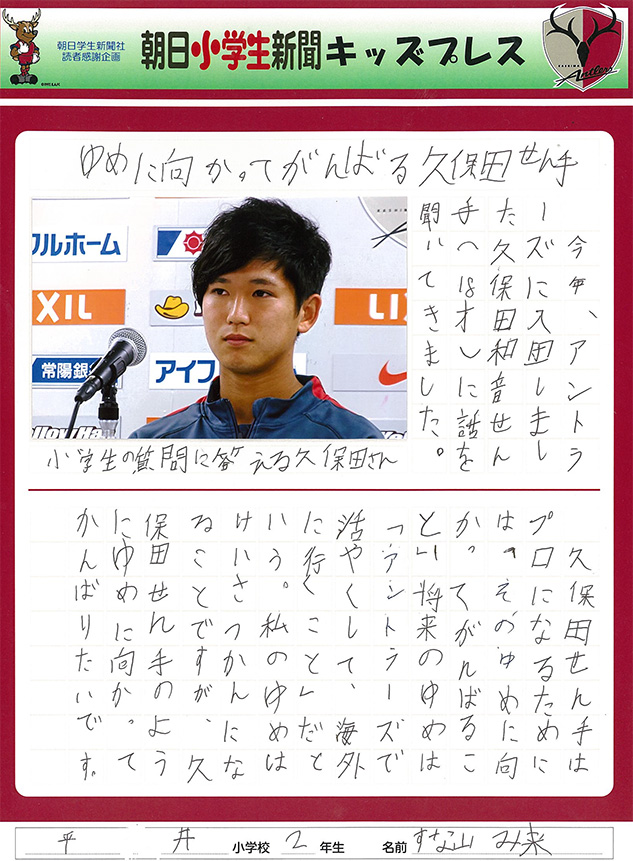 朝日学生新聞社
読者感謝企画
朝日小学生新聞キッズプレス
KASHIMA
Antlers
ゆめに向かってがんばる久保田せん手
フルホーム
XIL
LIX
常陽銀
アイフ
今年、アントラ
ーズに入団しまし
た久保田和音せん
手(18才)に話を
聞いてきました。
小学生の質問に答える久保田さん
久保田せん手は
プロになるために
は「そのゆめに向
かってがんばるこ
と」、将来のゆめは
「アントラーズで
活やくして、海外
に行くこと」だと
いう。私のゆめは
けいさつかんにな
ることですが、久
保田せん手のよう
にゆめに向かって
がんばりたいです。
平井 小学校 2 年生 名前 すな山 み来